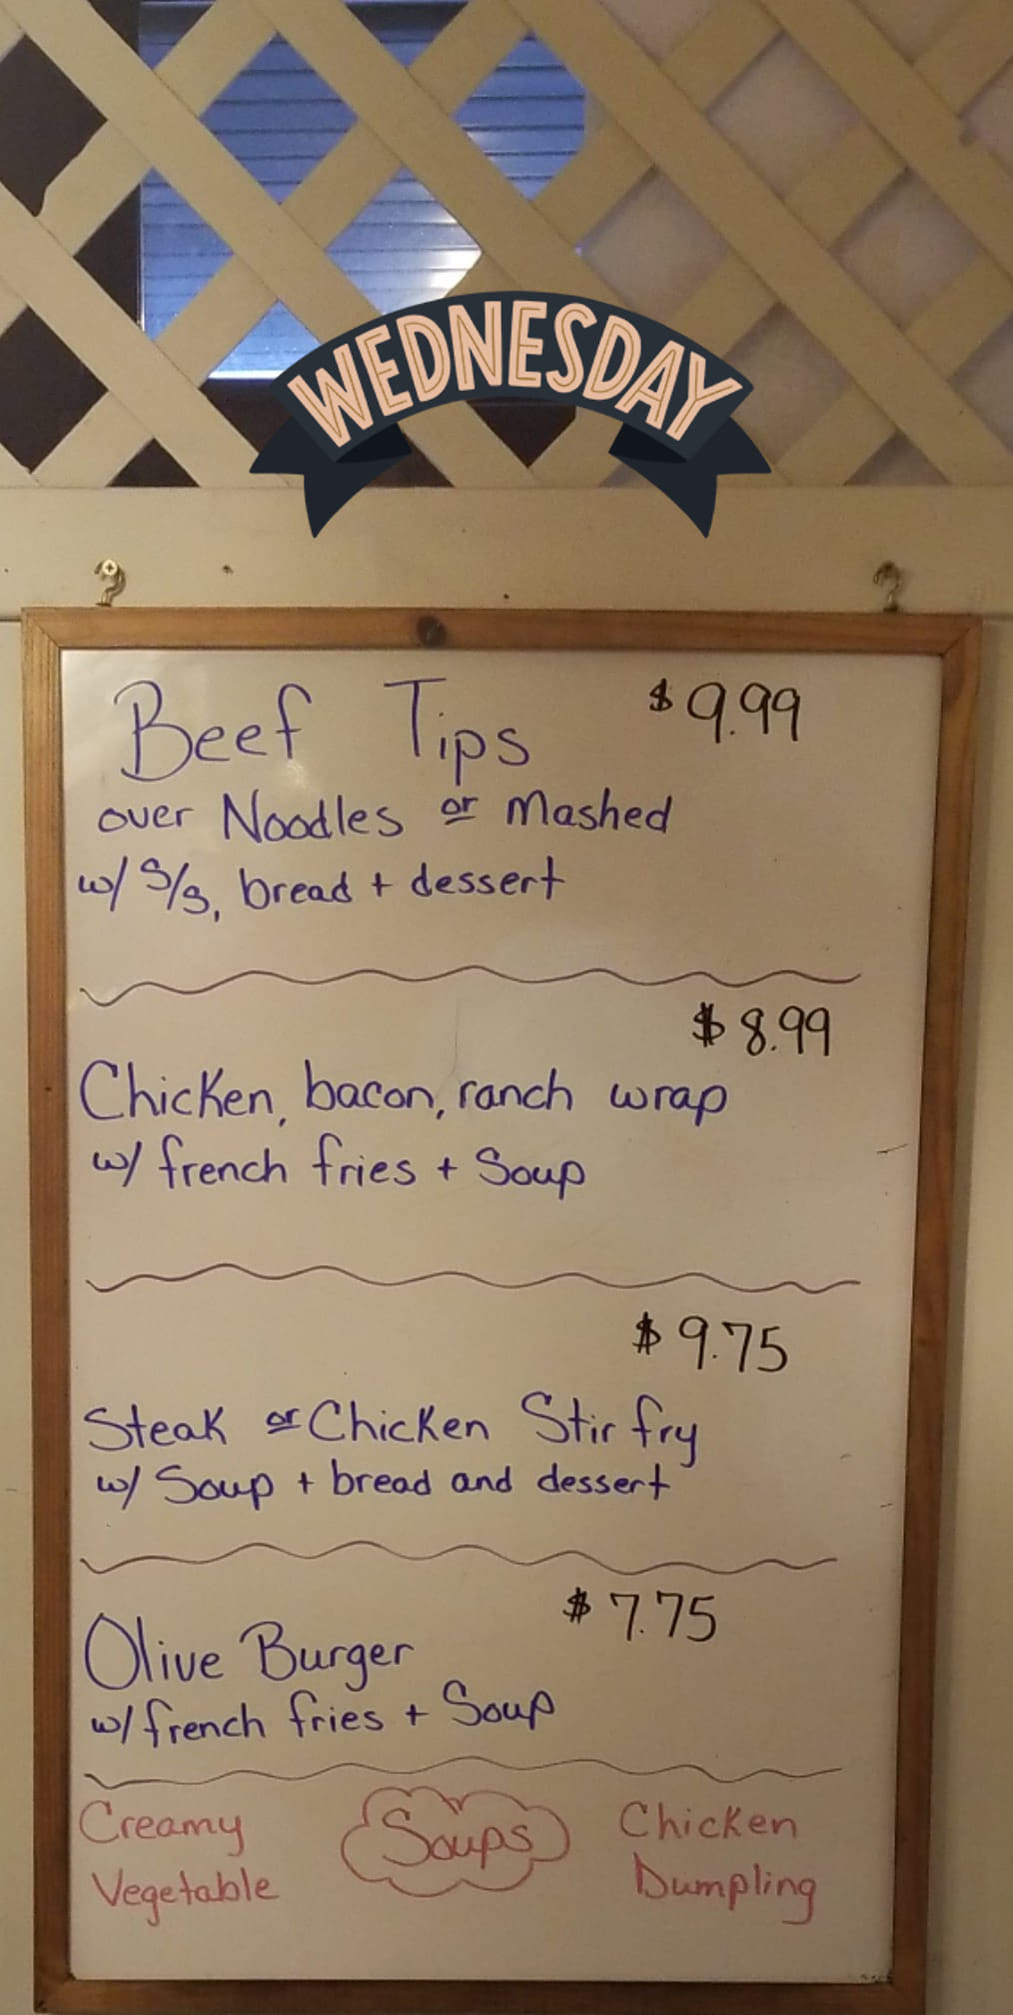 WEDNESDAY
Beef Tips $9.99
over Noodles or Mashed
w/ S/s, bread + dessert
$8.99
Chicken, bacon, ranch wrap
w/ french fries + Soup
$9.75
Steak or Chicken Stir fry
w/ Soup + bread and dessert
$7.75
Olive Burger
w/ french fries + Soup
Creamy Soups Chicken
Vegetable Dumpling